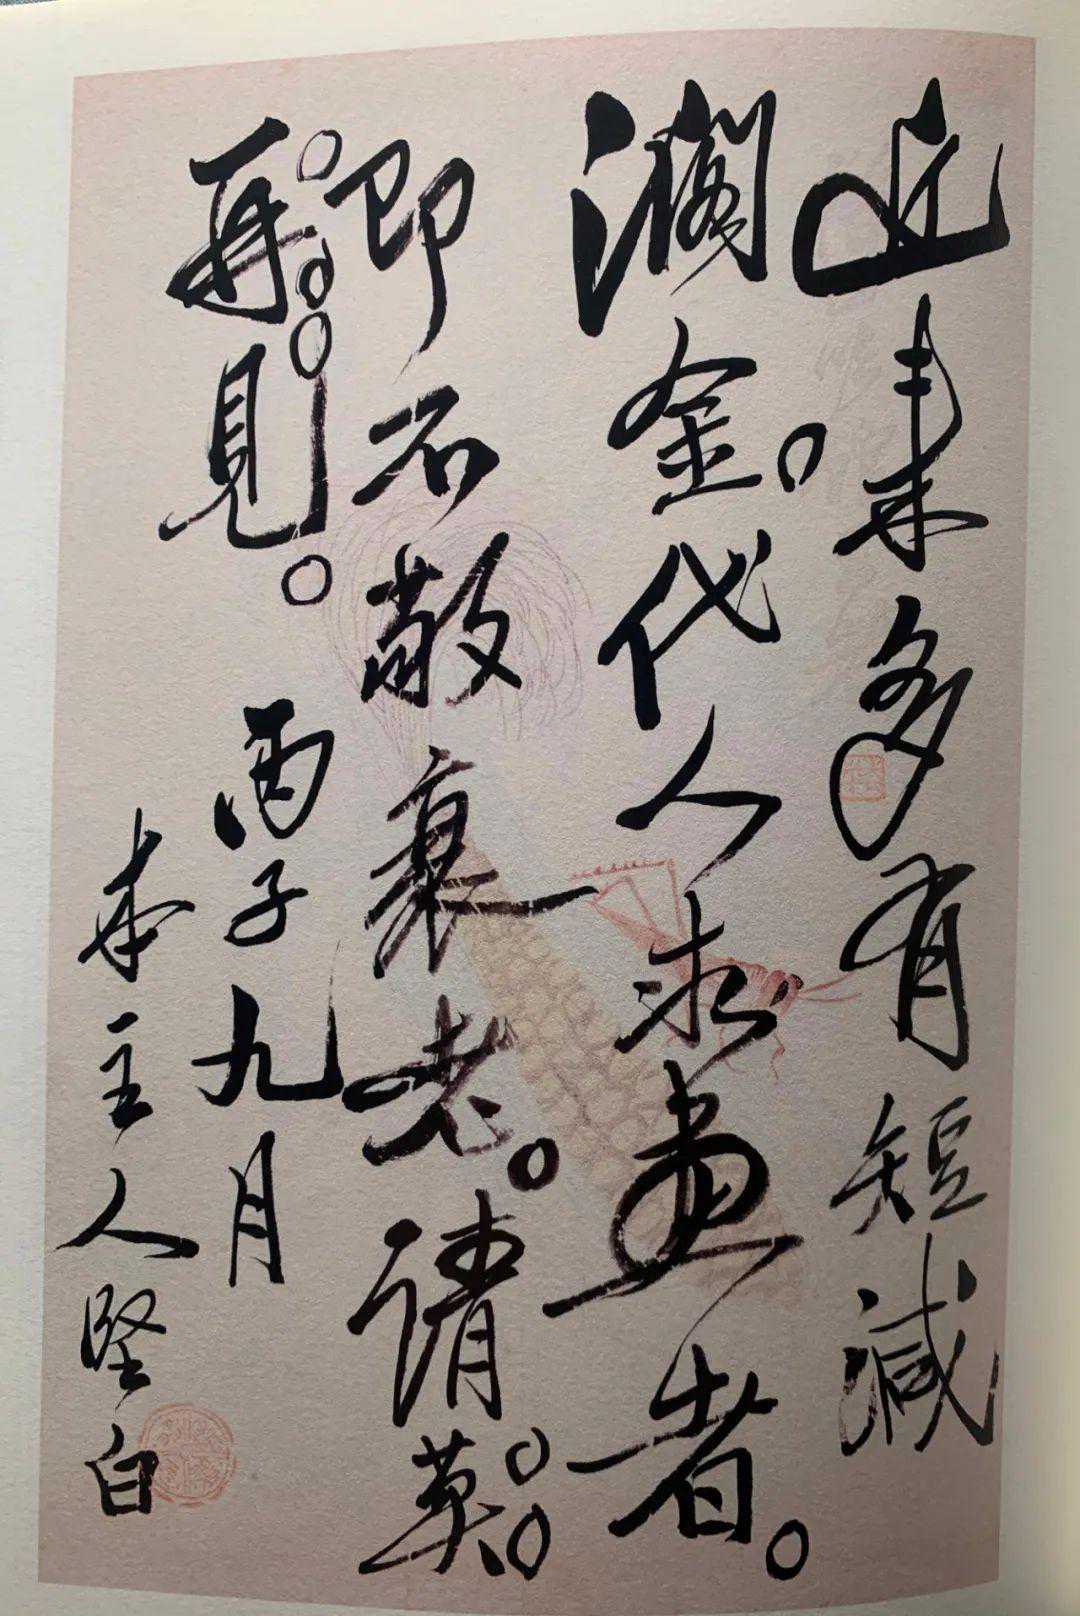 近来多有短减
潤金。代人求畫者。
即不敬衰老。請莫。。
再。見。
丙子九月
本主人堅白